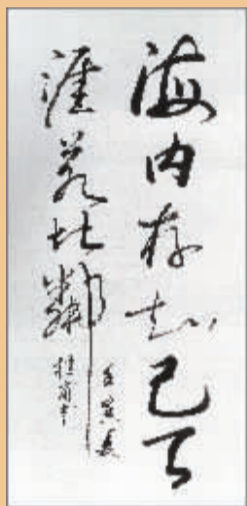 海内存知己天
涯若比邻